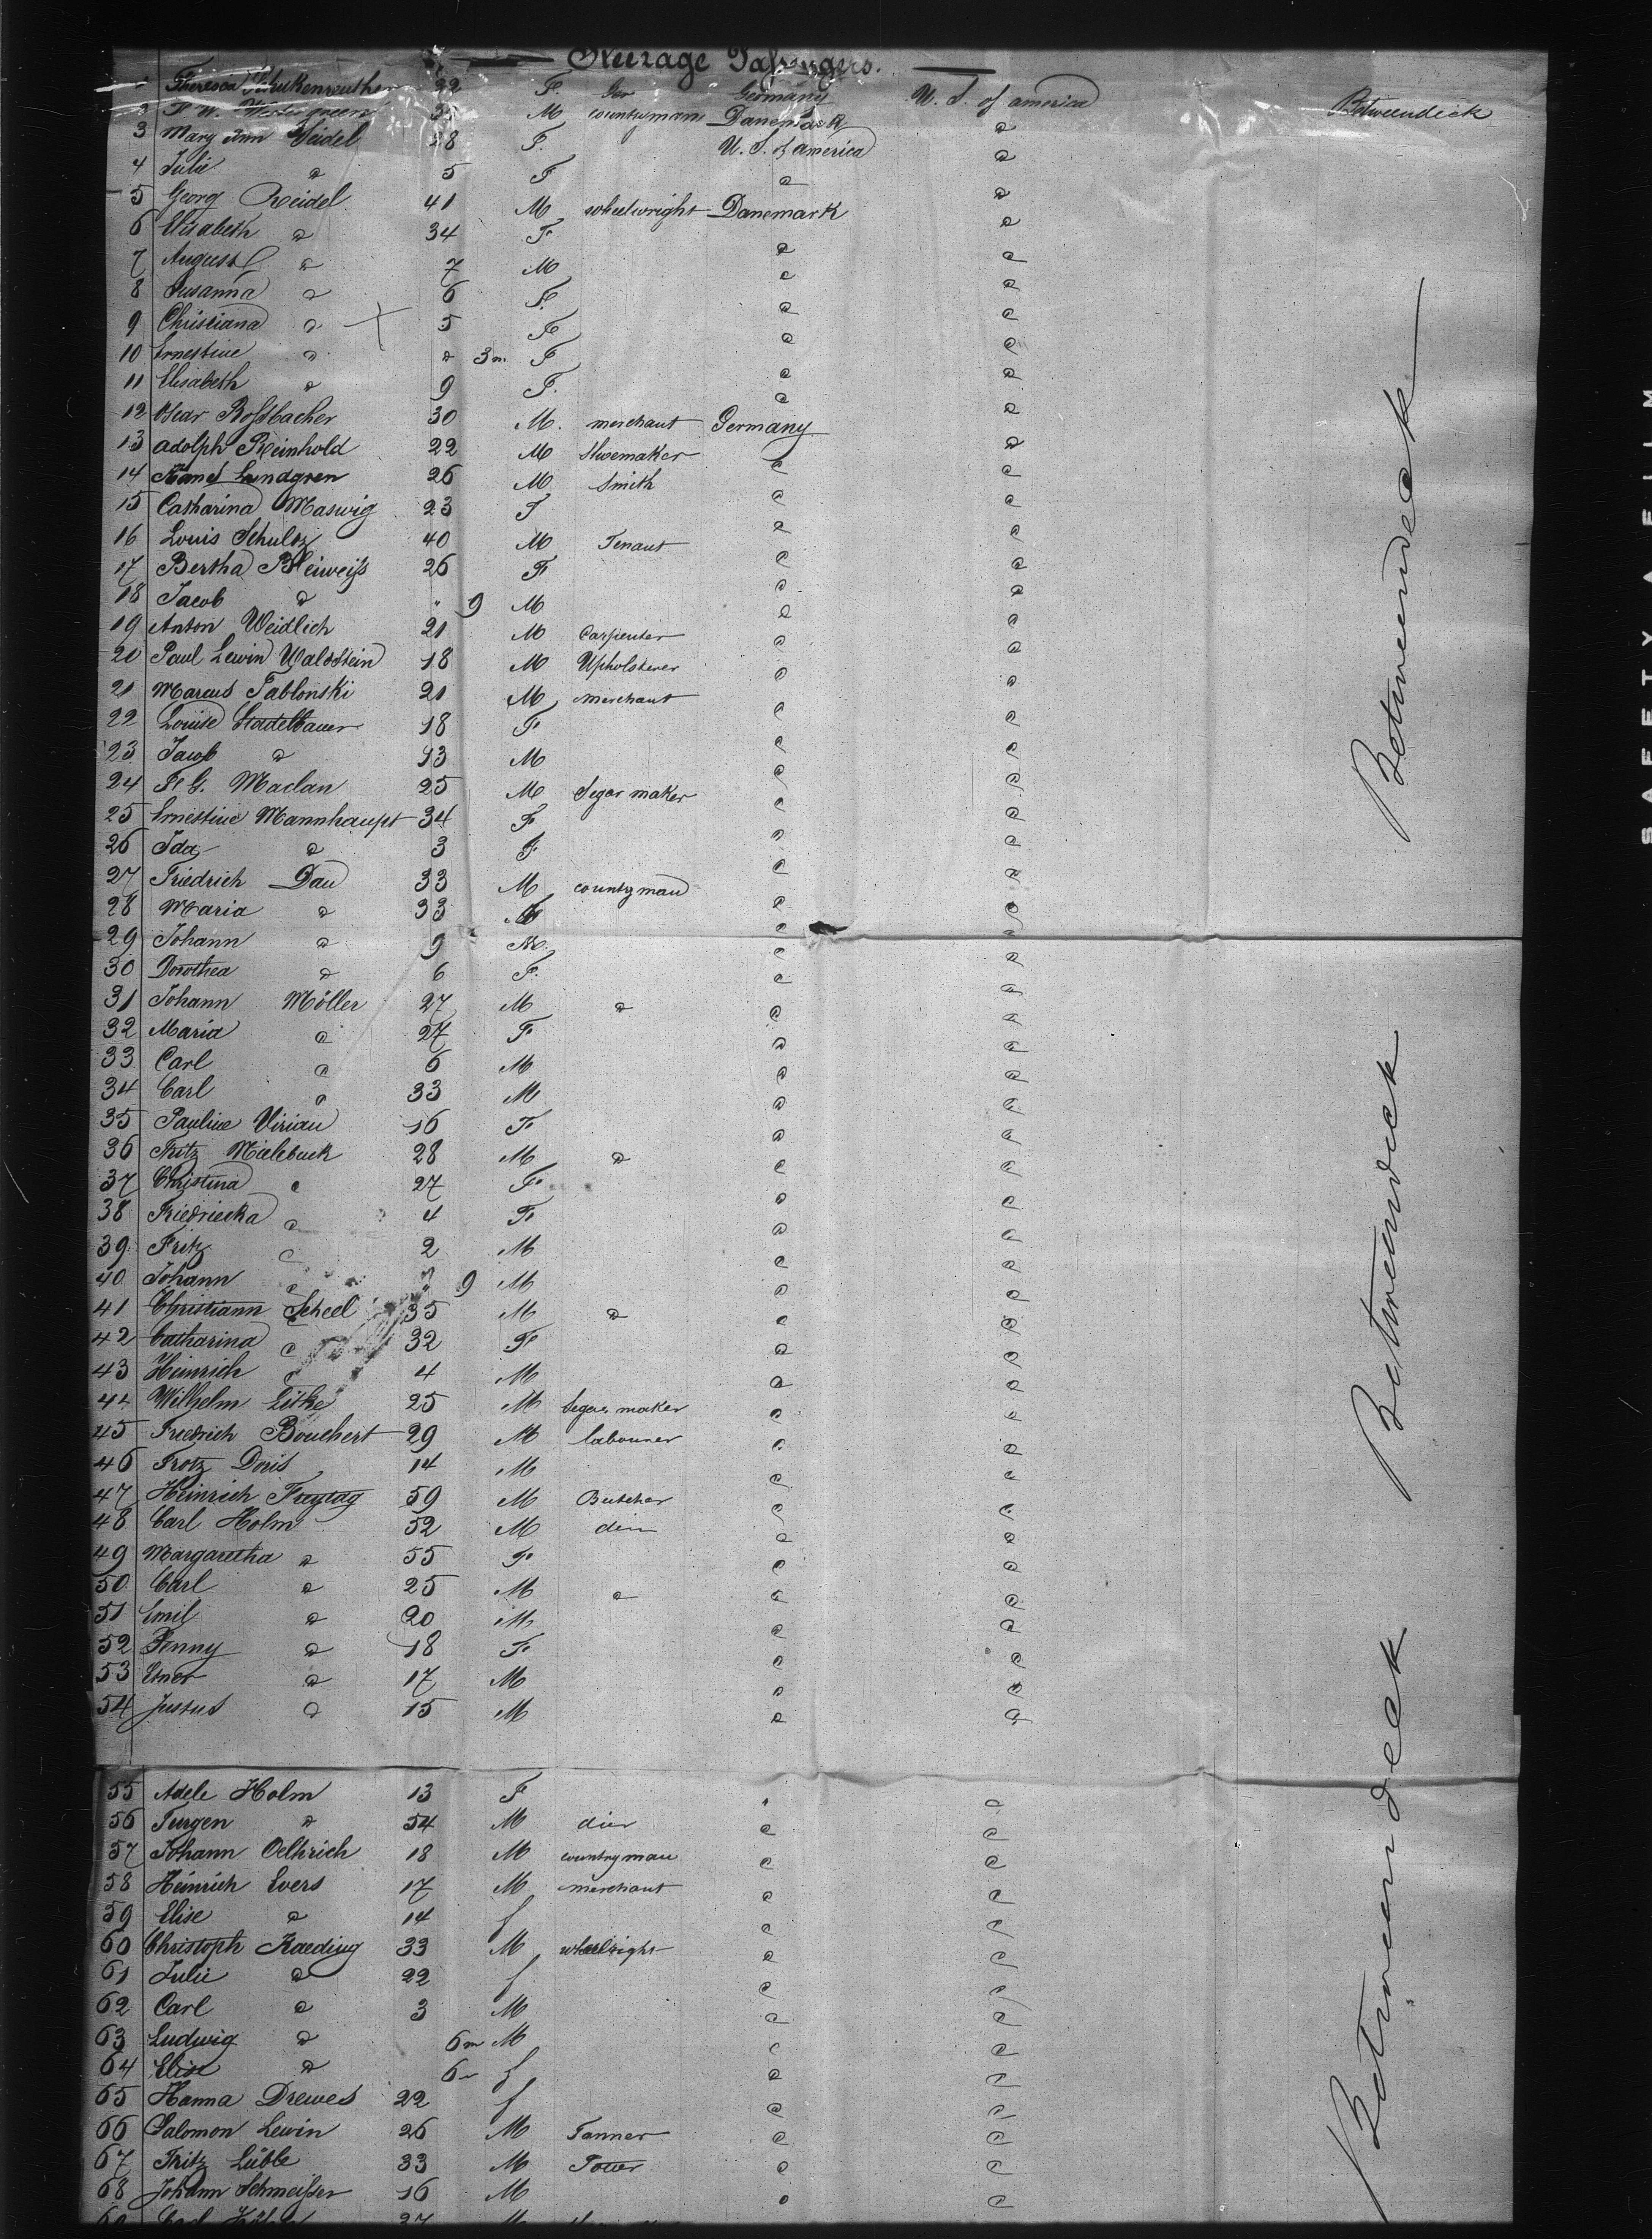 Steerage Passengers.
1 Theresa 22 F. Germany U. S. of america Betweendeck
2 M countryman Danemark a
3 Mary Ann Seidel 28 F. U. S. of America a
4 Julie a 5 F a a
5 Georg Reidel 41 M wheelwright Danemark a
6 Elisabeth a 34 F a a
7 August a 7 M a a
8 Susanna a 6 F. a a
9 Christiana a 5 F a a
10 Ernestine a a 3 m. F a a
11 Elisabeth a 9 F. a a
12 Oscar Rossbacher 30 M. merchant Germany a
13 Adolph Reinhold 22 M Shoemaker a a
14 Hans Lundgren 26 M Smith a a
15 Catharina Maswig 23 F a a
16 Louis Schultz 40 M Tenant a a
17 Bertha Bleiweiss 26 F a a
18 Jacob a " 9 M a a
19 Anton Weidlich 21 M Carpenter a a
20 Paul Lewin Waldstein 18 M Upholsterer a a
21 Marcus Jablonski 21 M merchant a a
22 Louise Stadelbauer 18 F a a
23 Jacob a 13 M a a
24 Maclan 25 M Segar maker a a
25 Ernestine Mannhaupt 34 F a a
26 Ida a 3 F a a
27 Friedrich Dau 33 M countryman a a
28 Maria a 33 F a a
29 Johann a 9 M. a a
30 Dorothea a 6 F. a a
31 Johann Möller 27 M a a a
32 Maria a 27 F a a
33 Carl a 6 M a a
34 Carl a 33 M a a
35 Pauline Viriau 16 F a a
36 Fritz Malebuck 28 M a a a
37 Christina a 27 F. a a
38 Friedriecka a 4 F a a
39 Fritz a 2 M a a
40 Johann a " 9 M a a
41 Christiann Scheel 35 M a a a
42 Catharina a 32 F a a
43 Heinrich a 4 M a a
44 Wilhelm Lithe 25 M Segar maker a a
45 Friedrich Bouchert 29 M labourer a a
46 Frotz Doris 14 M a a
47 Heinrich Freytag 59 M Butcher a a
48 Carl Holm 52 M dier a a
49 Margaretha a 55 F a a
50 Carl a 25 M a a a
51 Emil a 20 M a a
52 Fenny a 18 F a a
53 a 17 M a a
54 Justus a 15 M a a
55 Adele Holm 13 F " a
56 Jurgen a 54 M dier a a
57 Johann Oelhrich 18 M countryman a a
58 Heinrich Evers 17 M merchant a a
59 Elise a 14 f a a
60 Christoph Kaeding 33 M wheelright a a
61 Julie a 22 f a a
62 Carl a 3 M a a
63 Ludwig a 6 m M a a
64 Elise a 6 m f a a
65 Hanna Drewes 22 f a a
66 Salomon Lewin 26 M Tanner a a
67 Fritz Lübbe 33 M a a
68 Johann Schmeisser 16 M a a
69 Carl 37
Betweendeck
Betweendeck
Betweendeck
SAFETY FILM